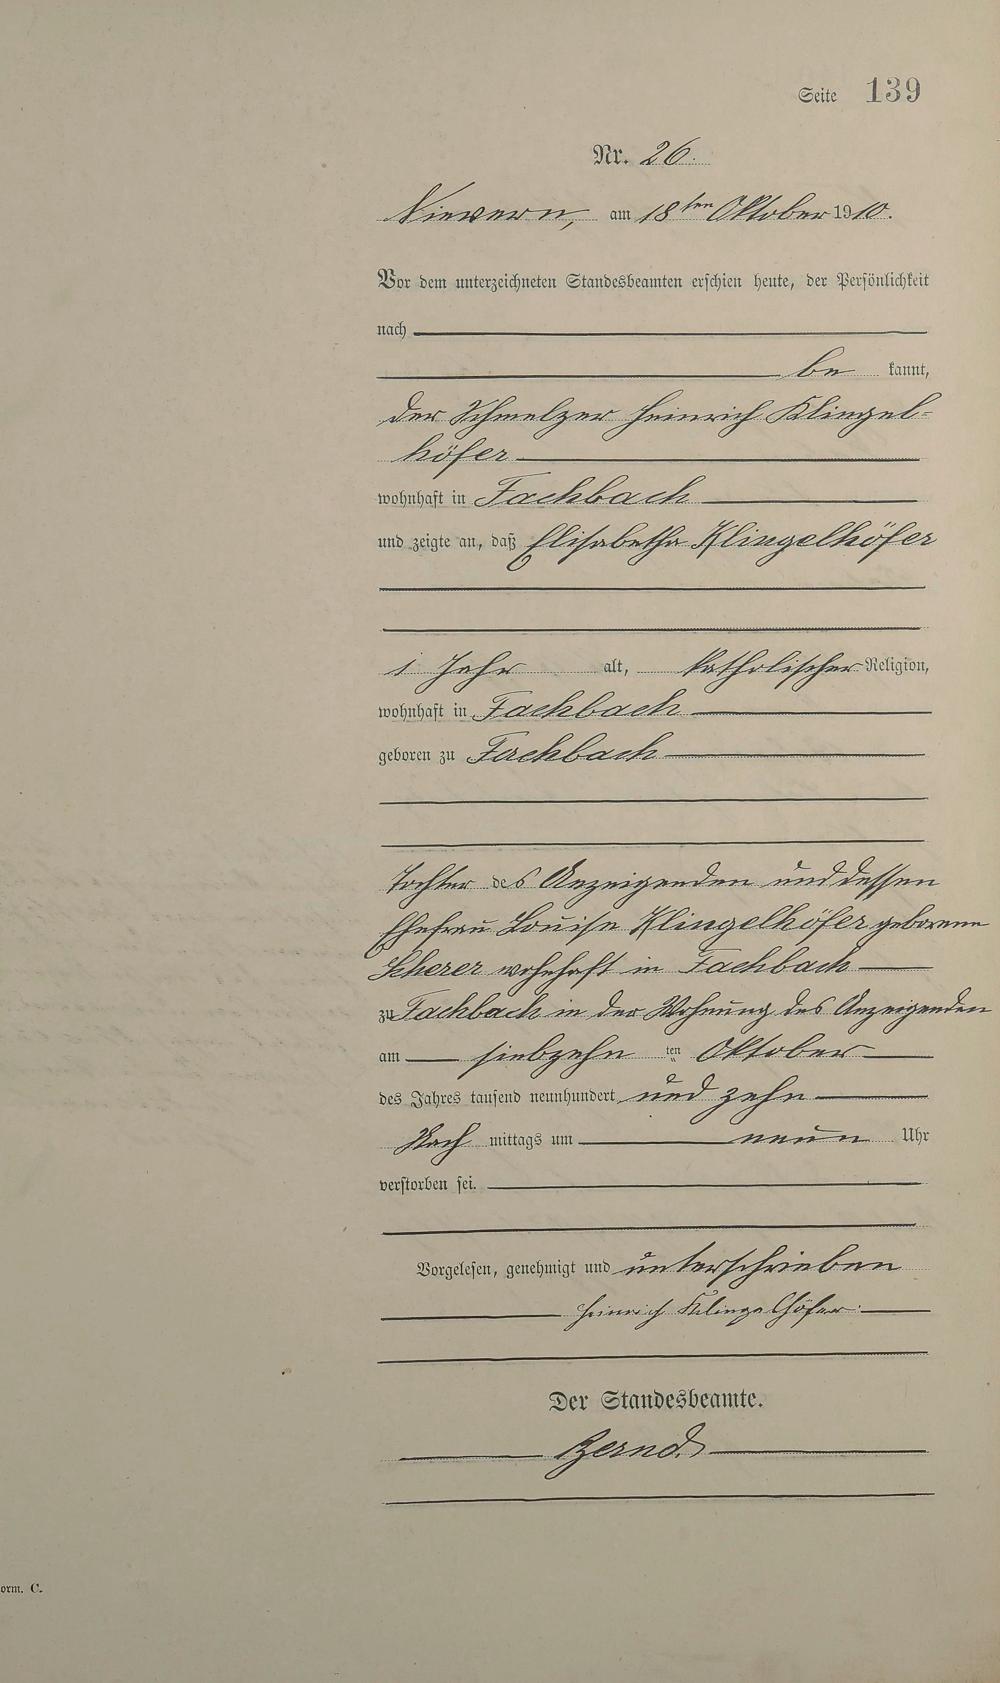 Seite 139
Nr. 26.
Nievern, am 18ten Oktober 1910.
Vor dem unterzeichneten Standesbeamten erschien heute, der Persönlichkeit
nach
be kannt,
der Schmelzer Heinrich Klingel-
höfer
wohnhaft in Fachbach
und zeigte an, daß Elisabetha Klingelhöfer
1 Jahr alt, katholischer Religion,
wohnhaft in Fachbach
geboren zu Fachbach
Tochter des Anzeigenden und dessen
Ehefrau Louise Klingelhöfer geborene
Scherer wohnhaft in Fachbach
zu Fachbach in der Wohnung des Anzeigenden
am siebzehn ten Oktober
des Jahres tausend neunhundert und zehn
Nach mittags um neun Uhr
verstorben sei.
Vorgelesen, genehmigt und unterschrieben
Heinrich Klingelhöfer.
Der Standesbeamte.
Bernd.
orm. C.